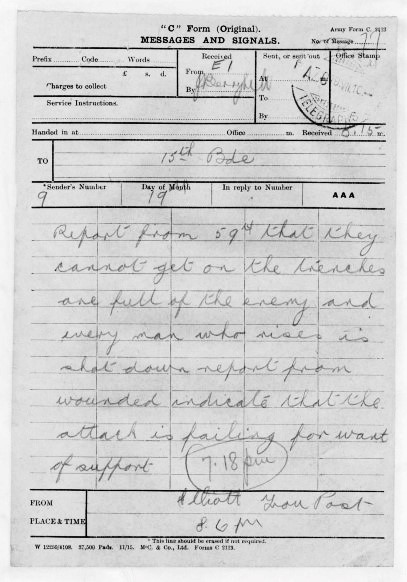 "C" Form (Original).
Army Form C. 2123
MESSAGES AND SIGNALS.
No. of Message
Prefix Code Words
Received
Sent, or sent out
Office Stamp
£ s. d.
From E1
At
Charges to collect
By
To
Service Instructions.
By
TELEGRAPHS
Handed in at Office m. Received 8.15 m.
TO 15th Bde
*Sender's Number
Day of Month
In reply to Number
AAA
9
19
Report from 59th that they
cannot get on the trenches
are full of the enemy and
every man who rises is
shot down report from
wounded indicate that the
attack is failing for want
of support 7.18 pm
FROM Elliott Post
PLACE & TIME 8.6 PM
* This line should be erased if not required.
W 12236/4108. 37,500 Pads. 11/15. McC. & Co., Ltd. Forms C 2123.